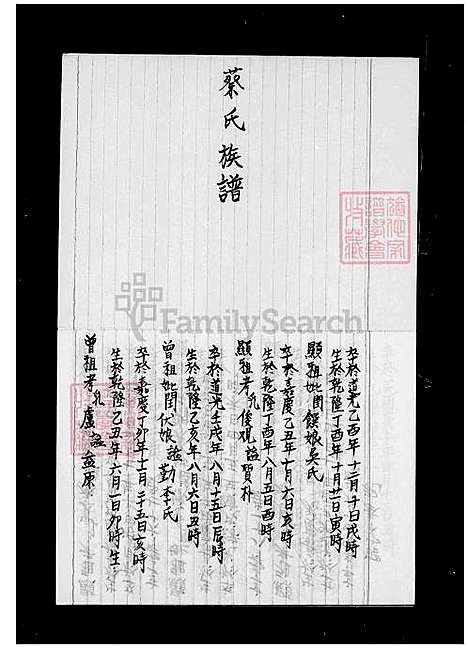 蔡氏族譜
譜學會
收藏
FamilySearch
曾祖考乳盧諡益原
生於乾隆乙丑年六月一日卯時生
卒於嘉慶丁卯年十二月二十五日亥時
曾祖妣閏伏娘諡勤李氏
生於乾隆乙亥年八月六日丑時
卒於道光壬戌年八月十五日辰時
顯祖考乳俊观諡質朴
生於乾隆丁酉年八月五日酉時
卒於嘉慶乙丑年七月六日亥時
顯祖妣閏饌娘吳氏
生於乾隆丁酉年十月廿一日寅時
卒於道光乙酉年十二月十日戌時